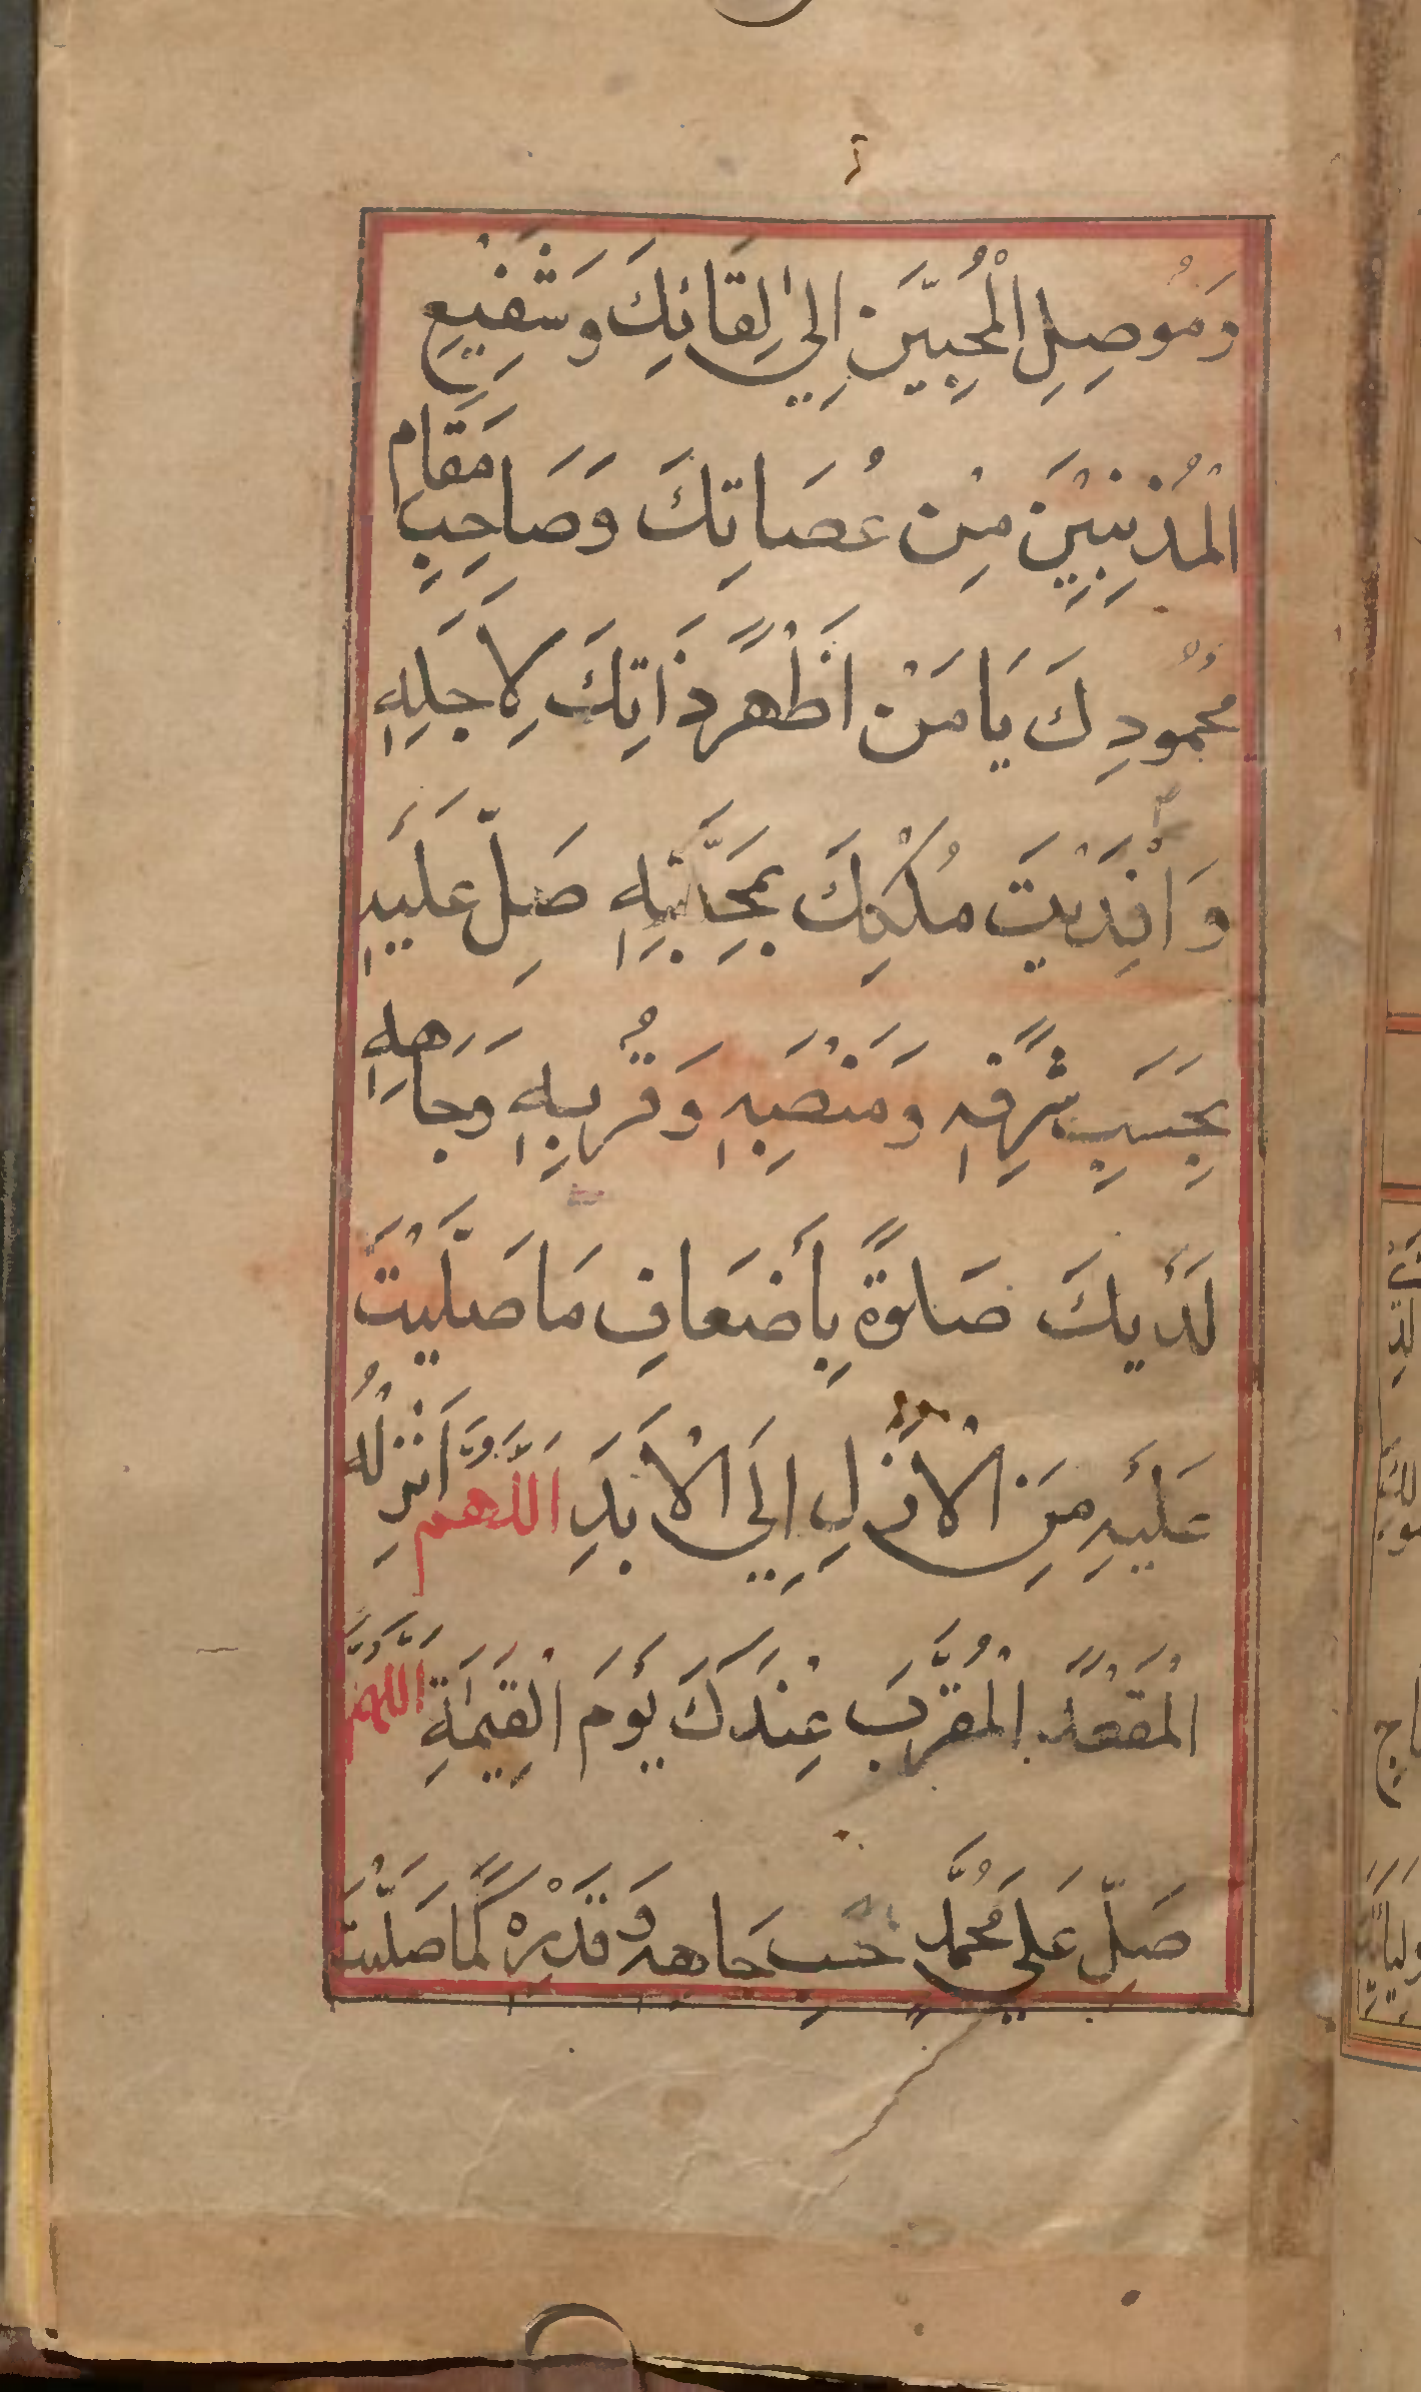 وَمُوصِلِ الْمُحِبِّيْنَ اِلىٰ لِقَائِكَ وَشَفِيْعِ
الْمُذْنِبِيْنَ مِنْ عُصَاتِكَ وَصَاحِبِ مَقَام
مَحْمُودِكَ يَا مَنْ اَظْهَرَ ذَاتِكَ لِاَجَلِهِ
مُلْكِكَ بِمَحَبَّتِهِ صَلِّ عَلَيهِ
بِحَسَبِ شَرَفِهِ وَمَنْصَبِهِ وَقُرْبِهِ وَجَاهِهِ
لَدَيكَ صَلوةً بِأَضعَافِ مَا صَلَّيْتَ
عَلَيهِ مِنَ الْاَزَلِ اِلَى الْاَبَدِ اَللّٰهُمَّ اَنْزِلْهُ
الْمَقْعَدَ الْمُقَرَّبَ عِنْدَكَ يَوْمَ الْقِيٰمَةِ اَللّٰهُمَّ
صَلِّ عَلىٰ مُحَمَّدٍ حسبِ جَاهِهِ وَقَدْرِهِ كَمَا صَلَّيْتَ